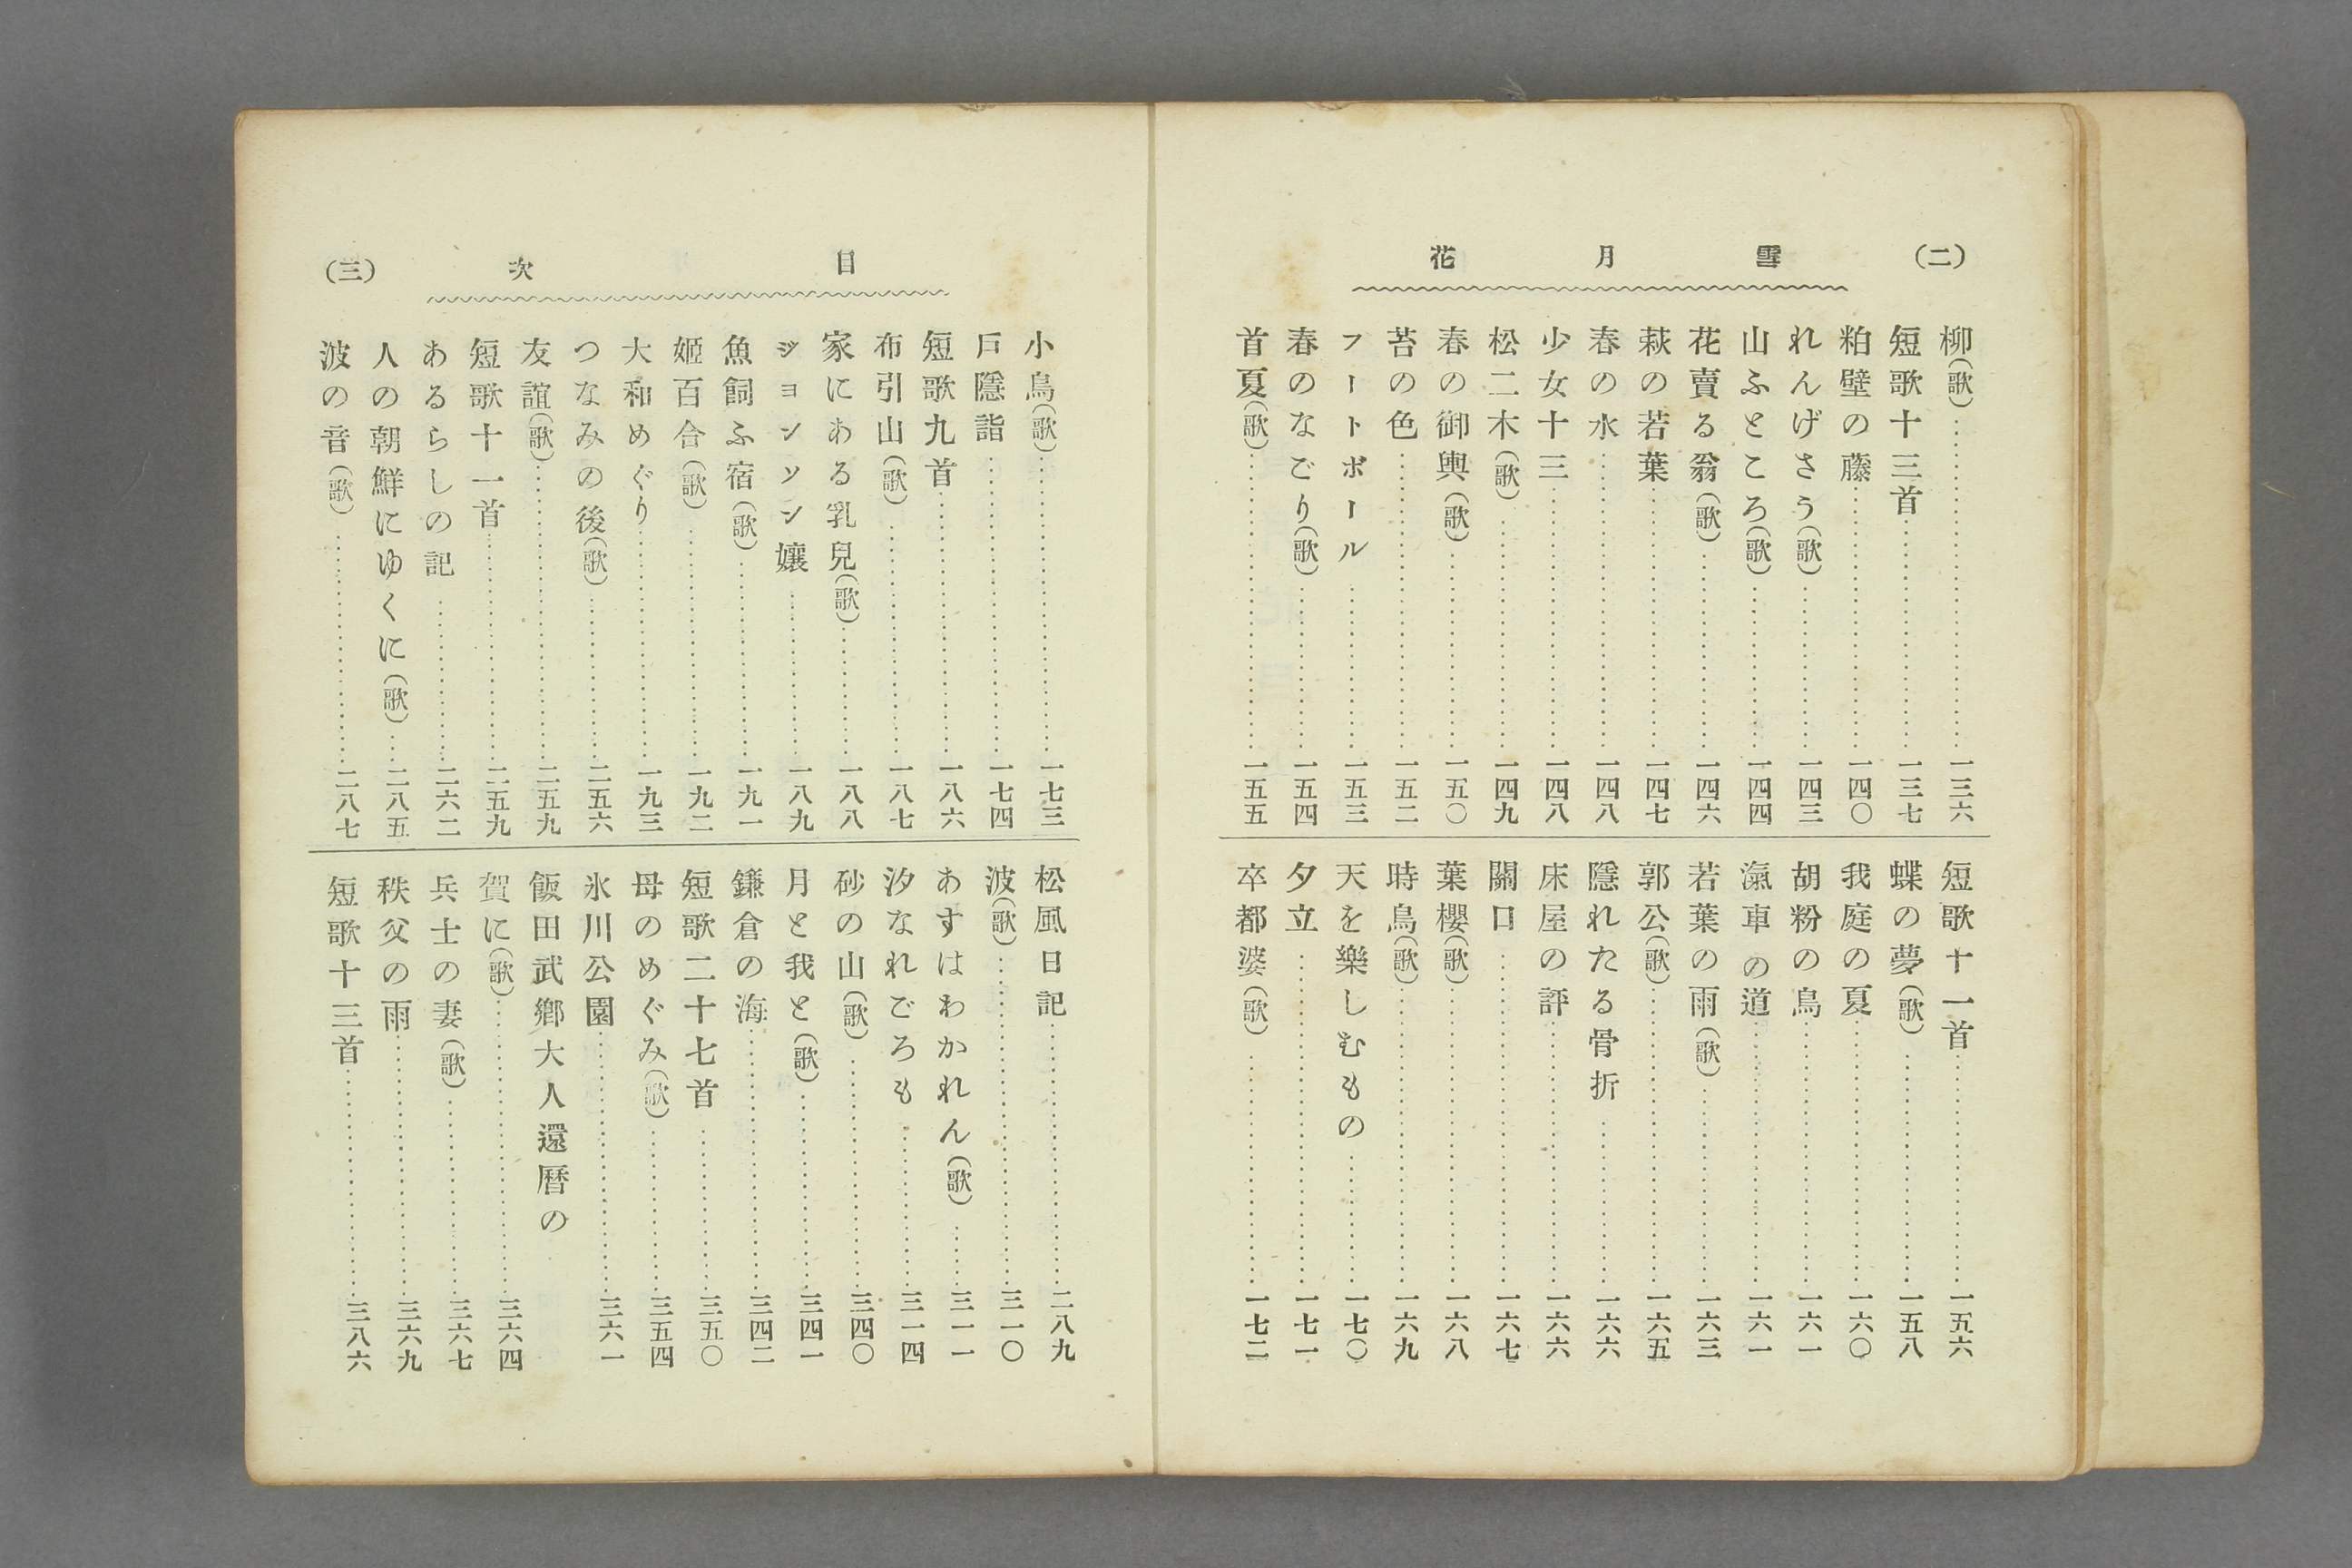 (二)　雪　月　花
柳(歌)……一三六
短歌十三首……一三七
粕壁の藤……一四〇
れんげさう(歌)……一四三
山ふところ(歌)……一四四
花賣る翁(歌)……一四六
萩の若葉……一四七
春の水……一四八
少女十三……一四八
松二木(歌)……一四九
春の御輿(歌)……一五〇
苔の色……一五二
フートボール……一五三
春のなごり(歌)……一五四
首夏(歌)……一五五
短歌十一首……一五六
蝶の夢(歌)……一五八
我庭の夏……一六〇
胡粉の鳥……一六一
滊車の道……一六一
若葉の雨(歌)……一六三
郭公(歌)……一六五
隱れたる骨折……一六六
床屋の評……一六六
關口……一六七
葉櫻(歌)……一六八
時鳥(歌)……一六九
天を樂しむもの……一七〇
夕立……一七一
卒都婆(歌)……一七二
目　次　(三)
小鳥(歌)……一七三
戸隱詣……一七四
短歌九首……一八六
布引山(歌)……一八七
家にある乳兒(歌)……一八八
ジョンソン孃……一八九
魚飼ふ宿(歌)……一九一
姬百合(歌)……一九二
大和めぐり……一九三
つなみの後(歌)……二五六
友誼(歌)……二五九
短歌十一首……二五九
あるらしの記……二六二
人の朝鮮にゆくに(歌)……二八五
波の音(歌)……二八七
松風日記……二八九
波(歌)……三一〇
あすはわかれん(歌)……三一一
汐なれごろも……三一四
砂の山(歌)……三四〇
月と我と(歌)……三四一
鎌倉の海……三四二
短歌二十七首……三五〇
母のめぐみ(歌)……三五四
氷川公園……三六一
飯田武鄕大人還曆の
賀に(歌)……三六四
兵士の妻(歌)……三六七
秩父の雨……三六九
短歌十三首……三八六